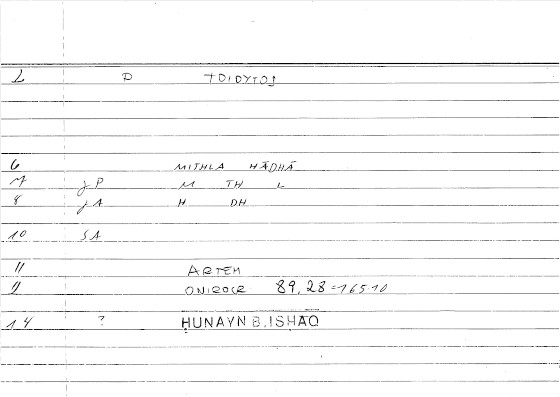 2 D TOIOYTOS
6 MITHLA HĀDHĀ
7 jP M TH L
8 jA H DH
10 SA
11 ARTEM
9 ONIROCR 89,28=165.10
14 ? ḤUNAYN B. ISḤĀQ